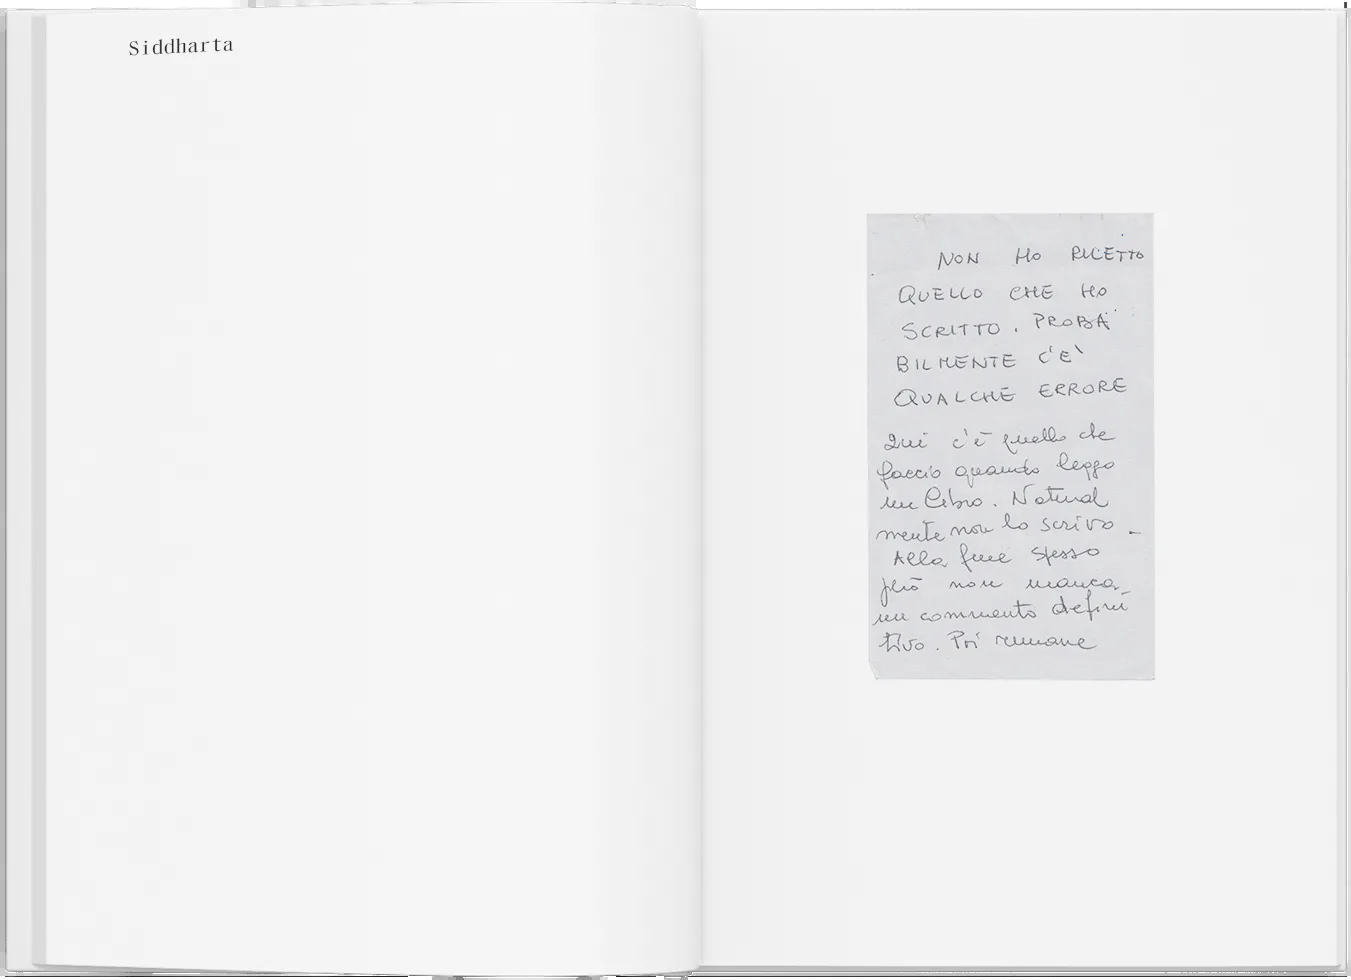 Siddharta
NON HO RILETTO
QUELLO CHE HO
SCRITTO. PROBA
BILMENTE C'E'
QUALCHE ERRORE
Qui c'è quello che
faccio quando leggo
un libro. Natural
mente non lo scrivo -
Alla fine spesso
però non manca
un commento defini
tivo. Poi rimane